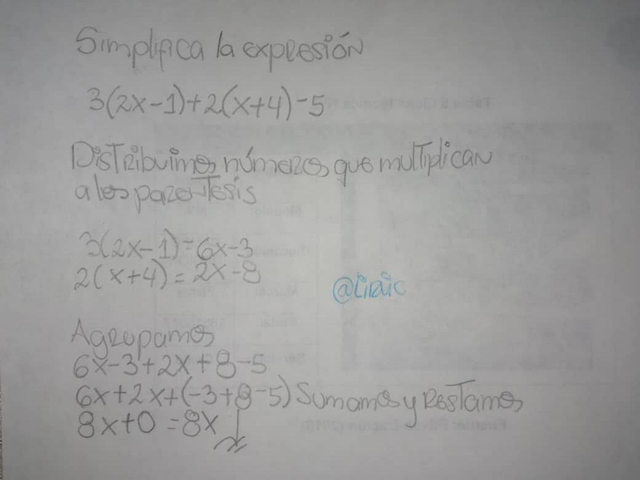 Simplifica la expresión
3(2x-1)+2(x+4)-5
Distribuimos números que multiplican
a los paréntesis
3(2x-1)=6x-3
2(x+4)=2x-8
@tiraic
Agrupamos
6x-3+2x+8-5
6x+2x+(-3+8-5) Sumamos y restamos
8x+0=8x